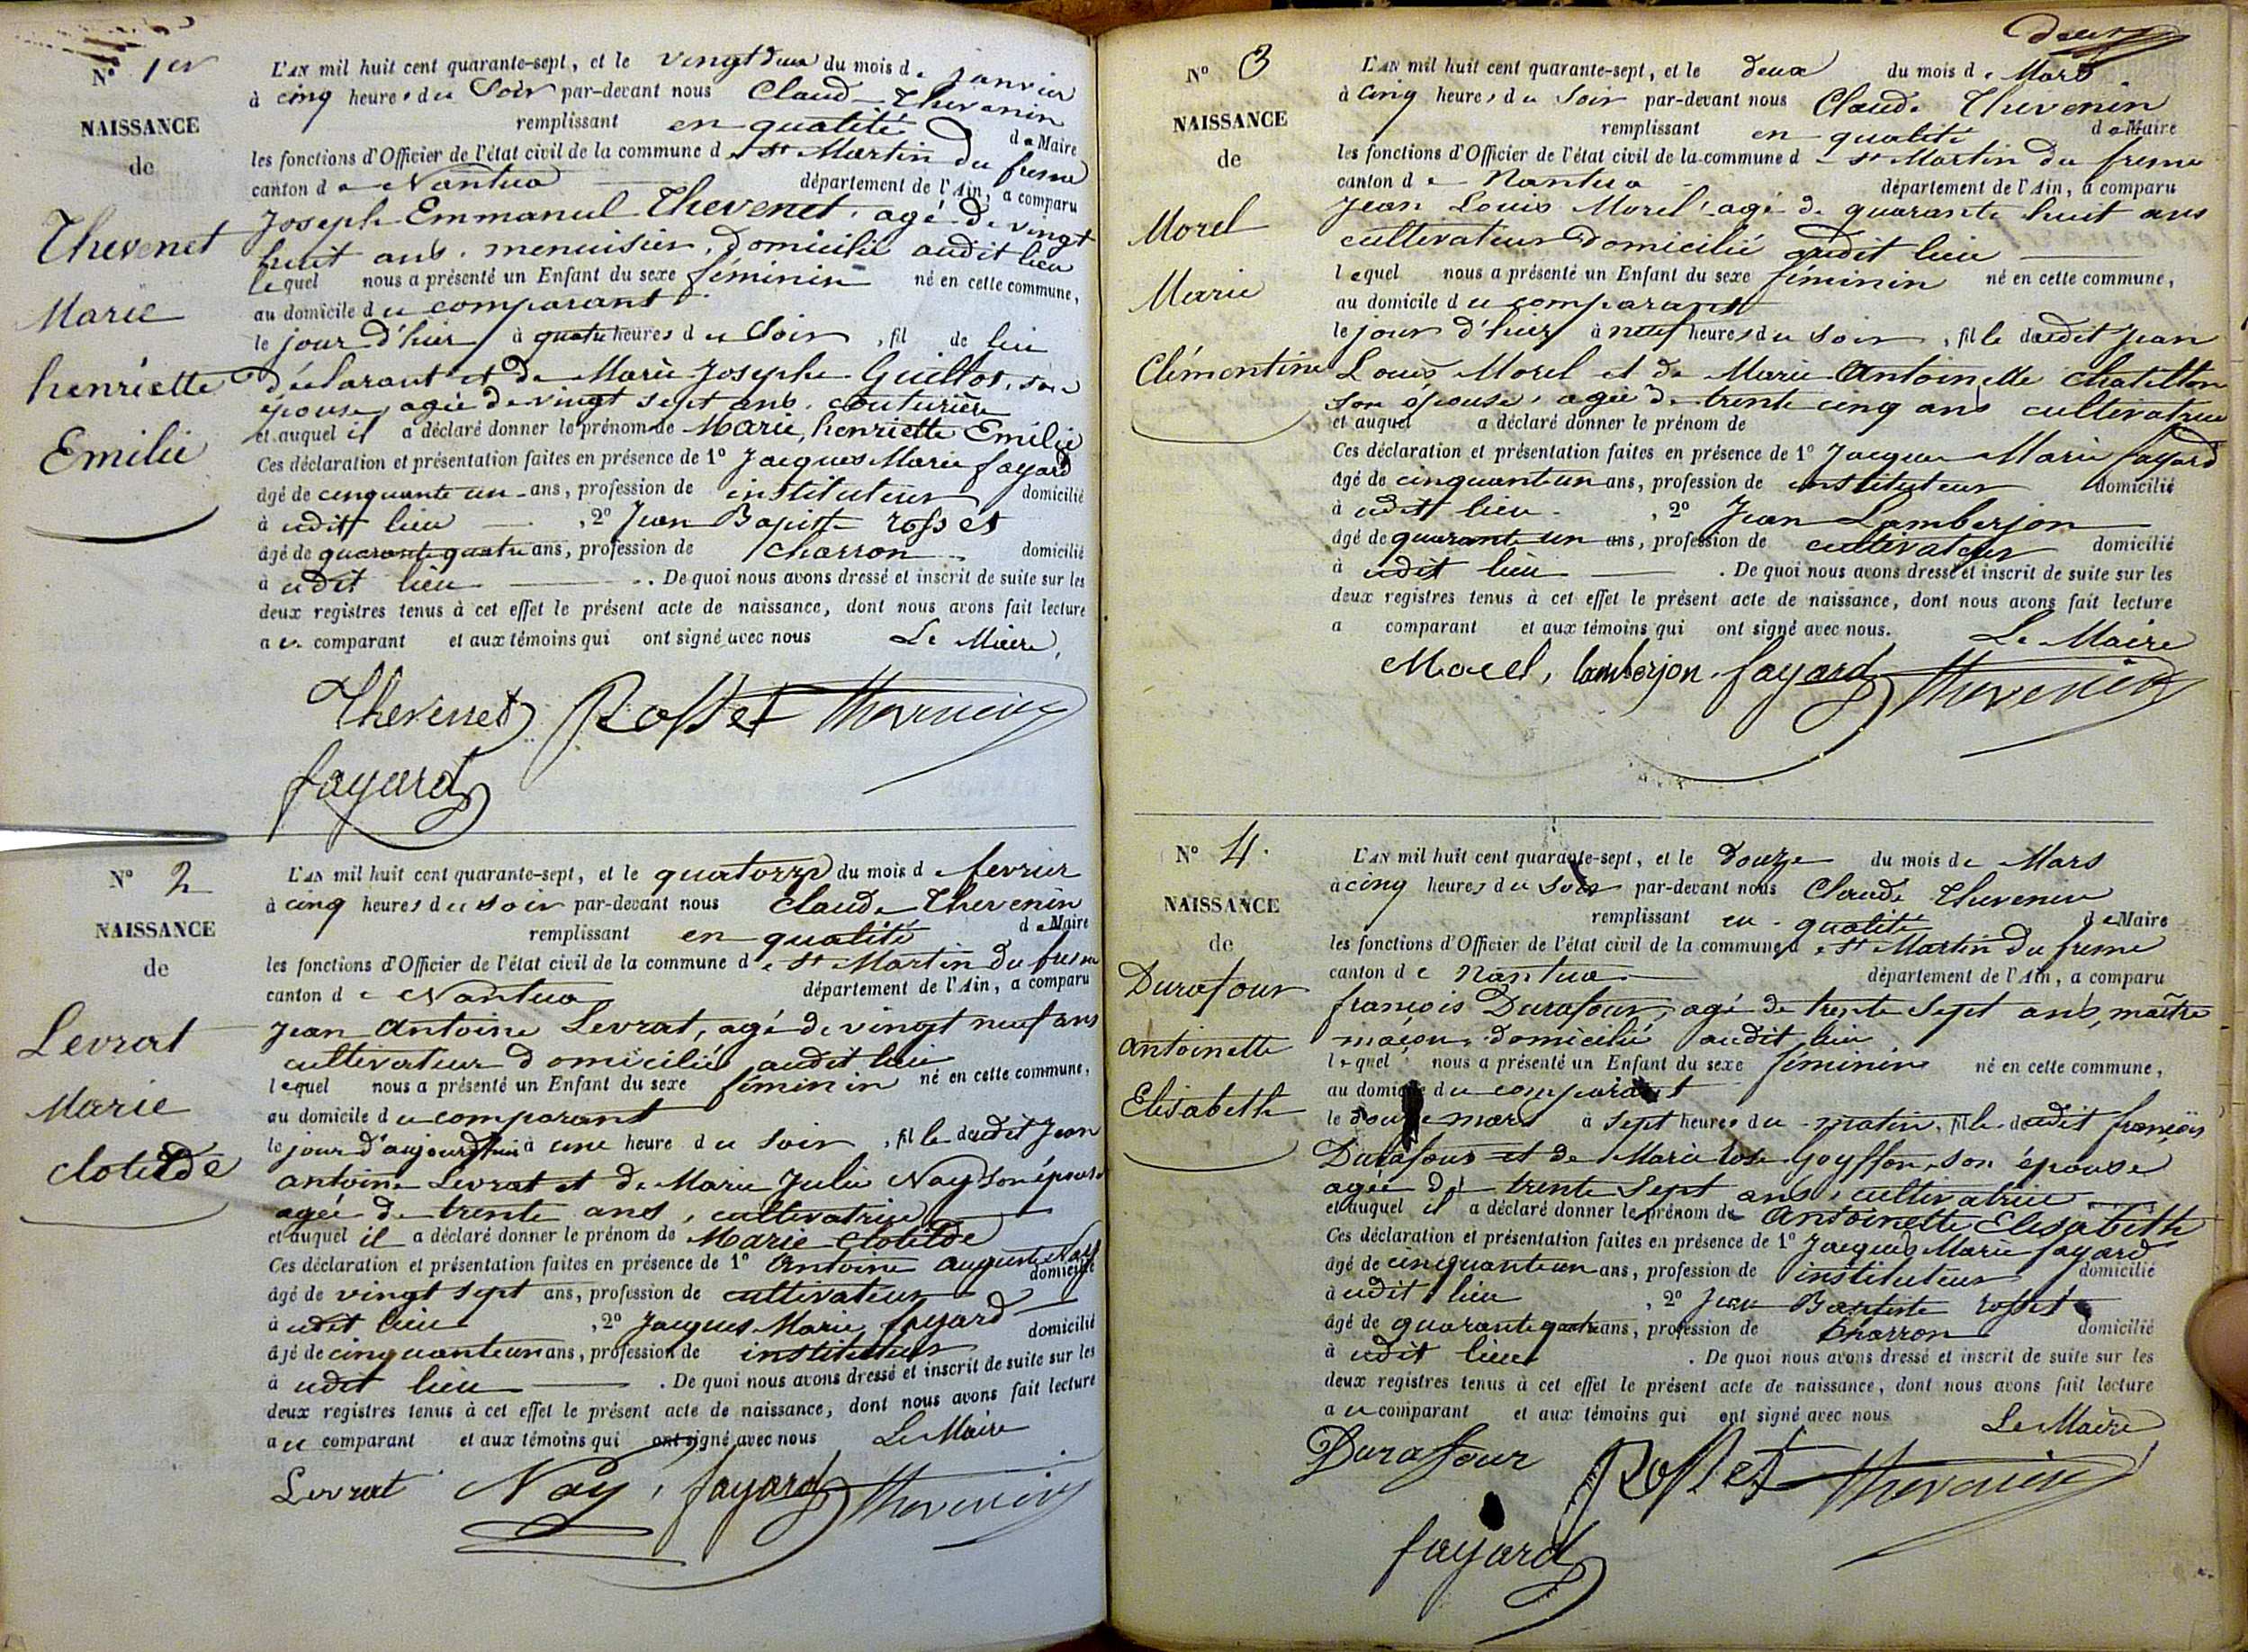 N° 1er
NAISSANCE
de
Thevenet
Marie
henriette
Emilie
L'AN mil huit cent quarante-sept, et le vingt deux du mois de janvier
à cinq heures du Soir par-devant nous Claude Thevenin
remplissant en qualité de Maire
les fonctions d'Officier de l'état civil de la commune de St Martin du fresne
canton de Nantua département de l'Ain, a comparu
Joseph Emmanuel Thevenet, agé de vingt
huit ans, menuisier, domicilié audit lieu
lequel nous a présenté un Enfant du sexe féminin né en cette commune,
au domicile du comparant
le jour d'hier à quatre heures du Soir, fil de lui
déclarant et de Marie Josephe Guillot, son
épouse, agée de vingt sept ans, couturière
et auquel il a déclaré donner le prénom de Marie, henriette Emilie
Ces déclaration et présentation faites en présence de 1° Jacques Marie fayard
âgé de cinquante un ans, profession de instituteur domicilié
à udit lieu, 2° Jean Bapiste rosset
âgé de quarante quatre ans, profession de charron domicilié
à udit lieu. De quoi nous avons dressé et inscrit de suite sur les
deux registres tenus à cet effet le présent acte de naissance, dont nous avons fait lecture
au comparant et aux témoins qui ont signé avec nous Le Maire,
Thevenet Rosset Thevenin
fayard
N° 2
NAISSANCE
de
Levrat
Marie
clotilde
L'AN mil huit cent quarante-sept, et le quatorze du mois de fevrier
à cinq heures du soir par-devant nous Claude Thevenin
remplissant en qualité de Maire
les fonctions d'Officier de l'état civil de la commune de St Martin du fresne
canton de Nantua département de l'Ain, a comparu
Jean Antoine Levrat, agé de vingt neuf ans
cultivateur domicilié audit lieu
lequel nous a présenté un Enfant du sexe féminin né en cette commune,
au domicile du comparant
le jour d'aujourd'hui à une heure du soir, fille dudit Jean
antoine Levrat et de Marie Julie Nay son épouse
agée de trente ans, cultivatrice
et auquel il a déclaré donner le prénom de Marie Clotilde
Ces déclaration et présentation faites en présence de 1° Antoine auguste Nay
domicilié
âgé de vingt sept ans, profession de cultivateur
à udit lieu, 2° Jacques Marie fayard
domicilié
âgé de cinquante un ans, profession de instituteur
à udit lieu. De quoi nous avons dressé et inscrit de suite sur les
deux registres tenus à cet effet le présent acte de naissance, dont nous avons fait lecture
au comparant et aux témoins qui ont signé avec nous Le Maire
Levrat Nay, fayard Thevenin
deux
N° 3
NAISSANCE
de
Morel
Marie
Clémentine
L'AN mil huit cent quarante-sept, et le deux du mois de Mars
à Cinq heures du Soir par-devant nous Claude Thevenin
remplissant en qualité de Maire
les fonctions d'Officier de l'état civil de la commune de St Martin du fresne
canton de Nantua département de l'Ain, a comparu
Jean Louis Morel, agé de quarante huit ans
cultivateur domicilié audit lieu
lequel nous a présenté un Enfant du sexe féminin né en cette commune,
au domicile du comparant
le jour d'hier à neuf heures du soir, fille dudit Jean
Louis Morel et de Marie Antoinette Chatillon
son épouse, agée de trente cinq ans cultivatrice
et auquel a déclaré donner le prénom de
Ces déclaration et présentation faites en présence de 1° Jacques Marie fayard
âgé de cinquante un ans, profession de instituteur domicilié
à udit lieu, 2° Jean Lamberjon
âgé de quarante un ans, profession de cultivateur domicilié
à udit lieu. De quoi nous avons dressé et inscrit de suite sur les
deux registres tenus à cet effet le présent acte de naissance, dont nous avons fait lecture
a comparant et aux témoins qui ont signé avec nous. Le Maire
Morel, lamberjon, fayard Thevenin
N° 4.
NAISSANCE
de
Durafour
antoinette
Elisabeth
L'AN mil huit cent quarante-sept, et le douze du mois de Mars
à cinq heures du Soir par-devant nous Claude Thevenin
remplissant en qualité de Maire
les fonctions d'Officier de l'état civil de la commune de St Martin du fresne
canton de Nantua département de l'Ain, a comparu
françois Durafour, agé de trente sept ans, maître
maçon, domicilié audit lieu
lequel nous a présenté un Enfant du sexe féminin né en cette commune,
au domicile du comparant
le douze mars à sept heures du matin, fille dudit françois
Durafour et de Marie rose Goyffon, son épouse
agée de trente sept ans, cultivatrice
et auquel il a déclaré donner le prénom de Antoinette Elisabeth
Ces déclaration et présentation faites en présence de 1° Jacques Marie fayard
âgé de cinquante un ans, profession de instituteur domicilié
à udit lieu, 2° Jean Baptiste rosset
âgé de quarante quatre ans, profession de charron domicilié
à udit lieu. De quoi nous avons dressé et inscrit de suite sur les
deux registres tenus à cet effet le présent acte de naissance, dont nous avons fait lecture
au comparant et aux témoins qui ont signé avec nous Le Maire
Durafour Rosset Thevenin
fayard